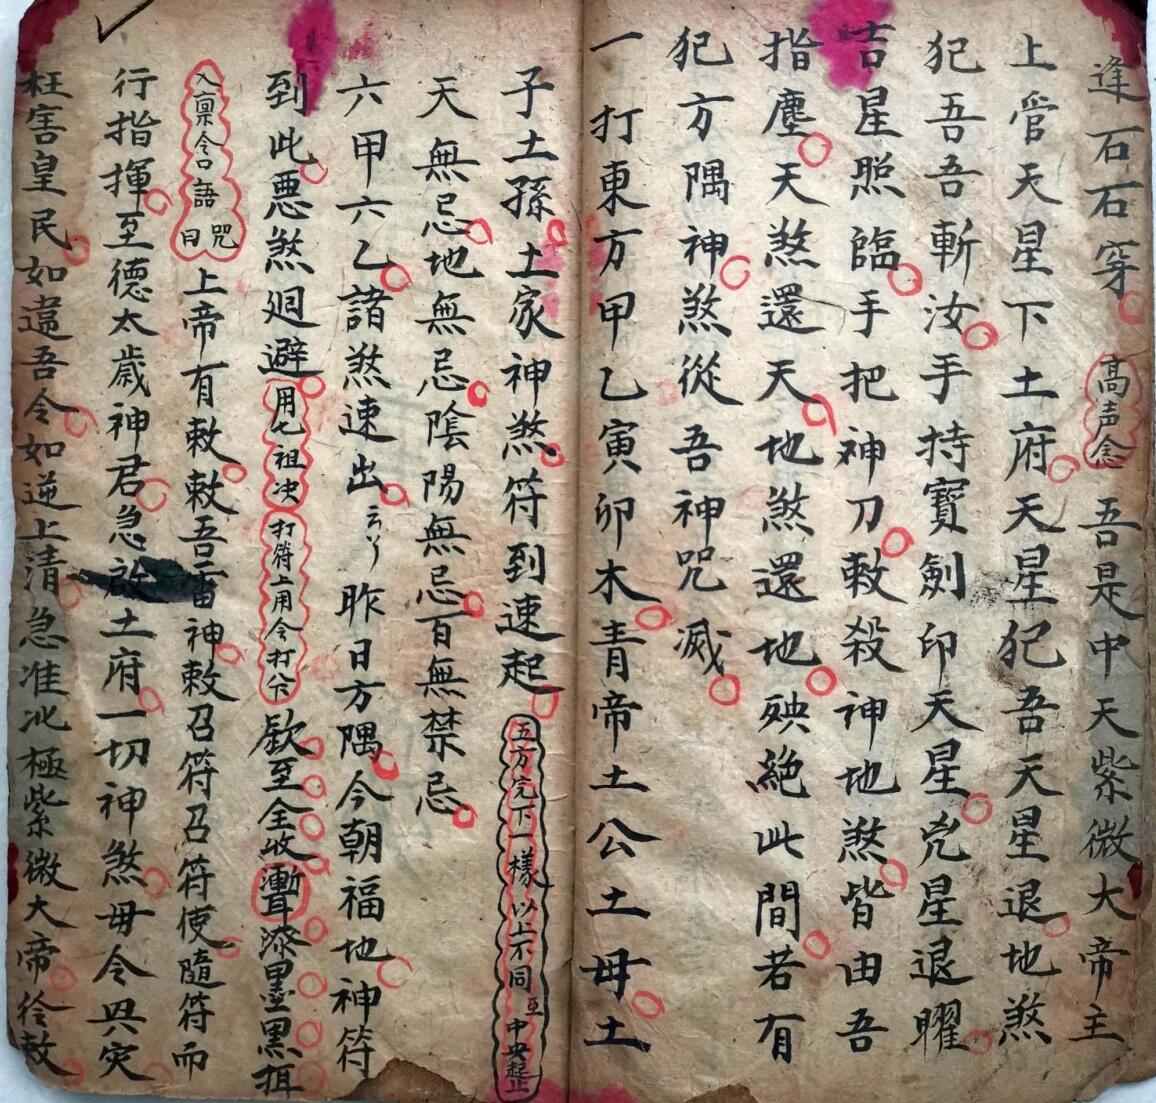 逢石石穿 高声念 吾是中天紫微大帝主
上管天星下土府天星犯吾天星退地煞
犯吾吾斬汝手持寶劍印天星兇星退曜
吉星照臨手把神刀敕殺神地煞皆由吾
指塵天煞還天地煞還地殃絕此間若有
犯方隅神煞從吾神咒滅
一打東方甲乙寅卯木青帝土公土母土
子土孫土家神煞符到速起 五方完下一樣以上不同至中央起止
天無忌地無忌陰陽無忌百無禁忌
六甲六乙諸煞速出 昨日方隅今朝福地神符
到此惡煞廻避 用七祖决 打符上用令打 歘至全收漆墨黑
入禀令口語咒曰 上帝有敕敕吾雷神敕召符召符使隨符而
行指揮至德太歲神君急啟土府一切神煞毋令興灾
枉害皇民如違吾令如逆上清急准北極紫微大帝律敕